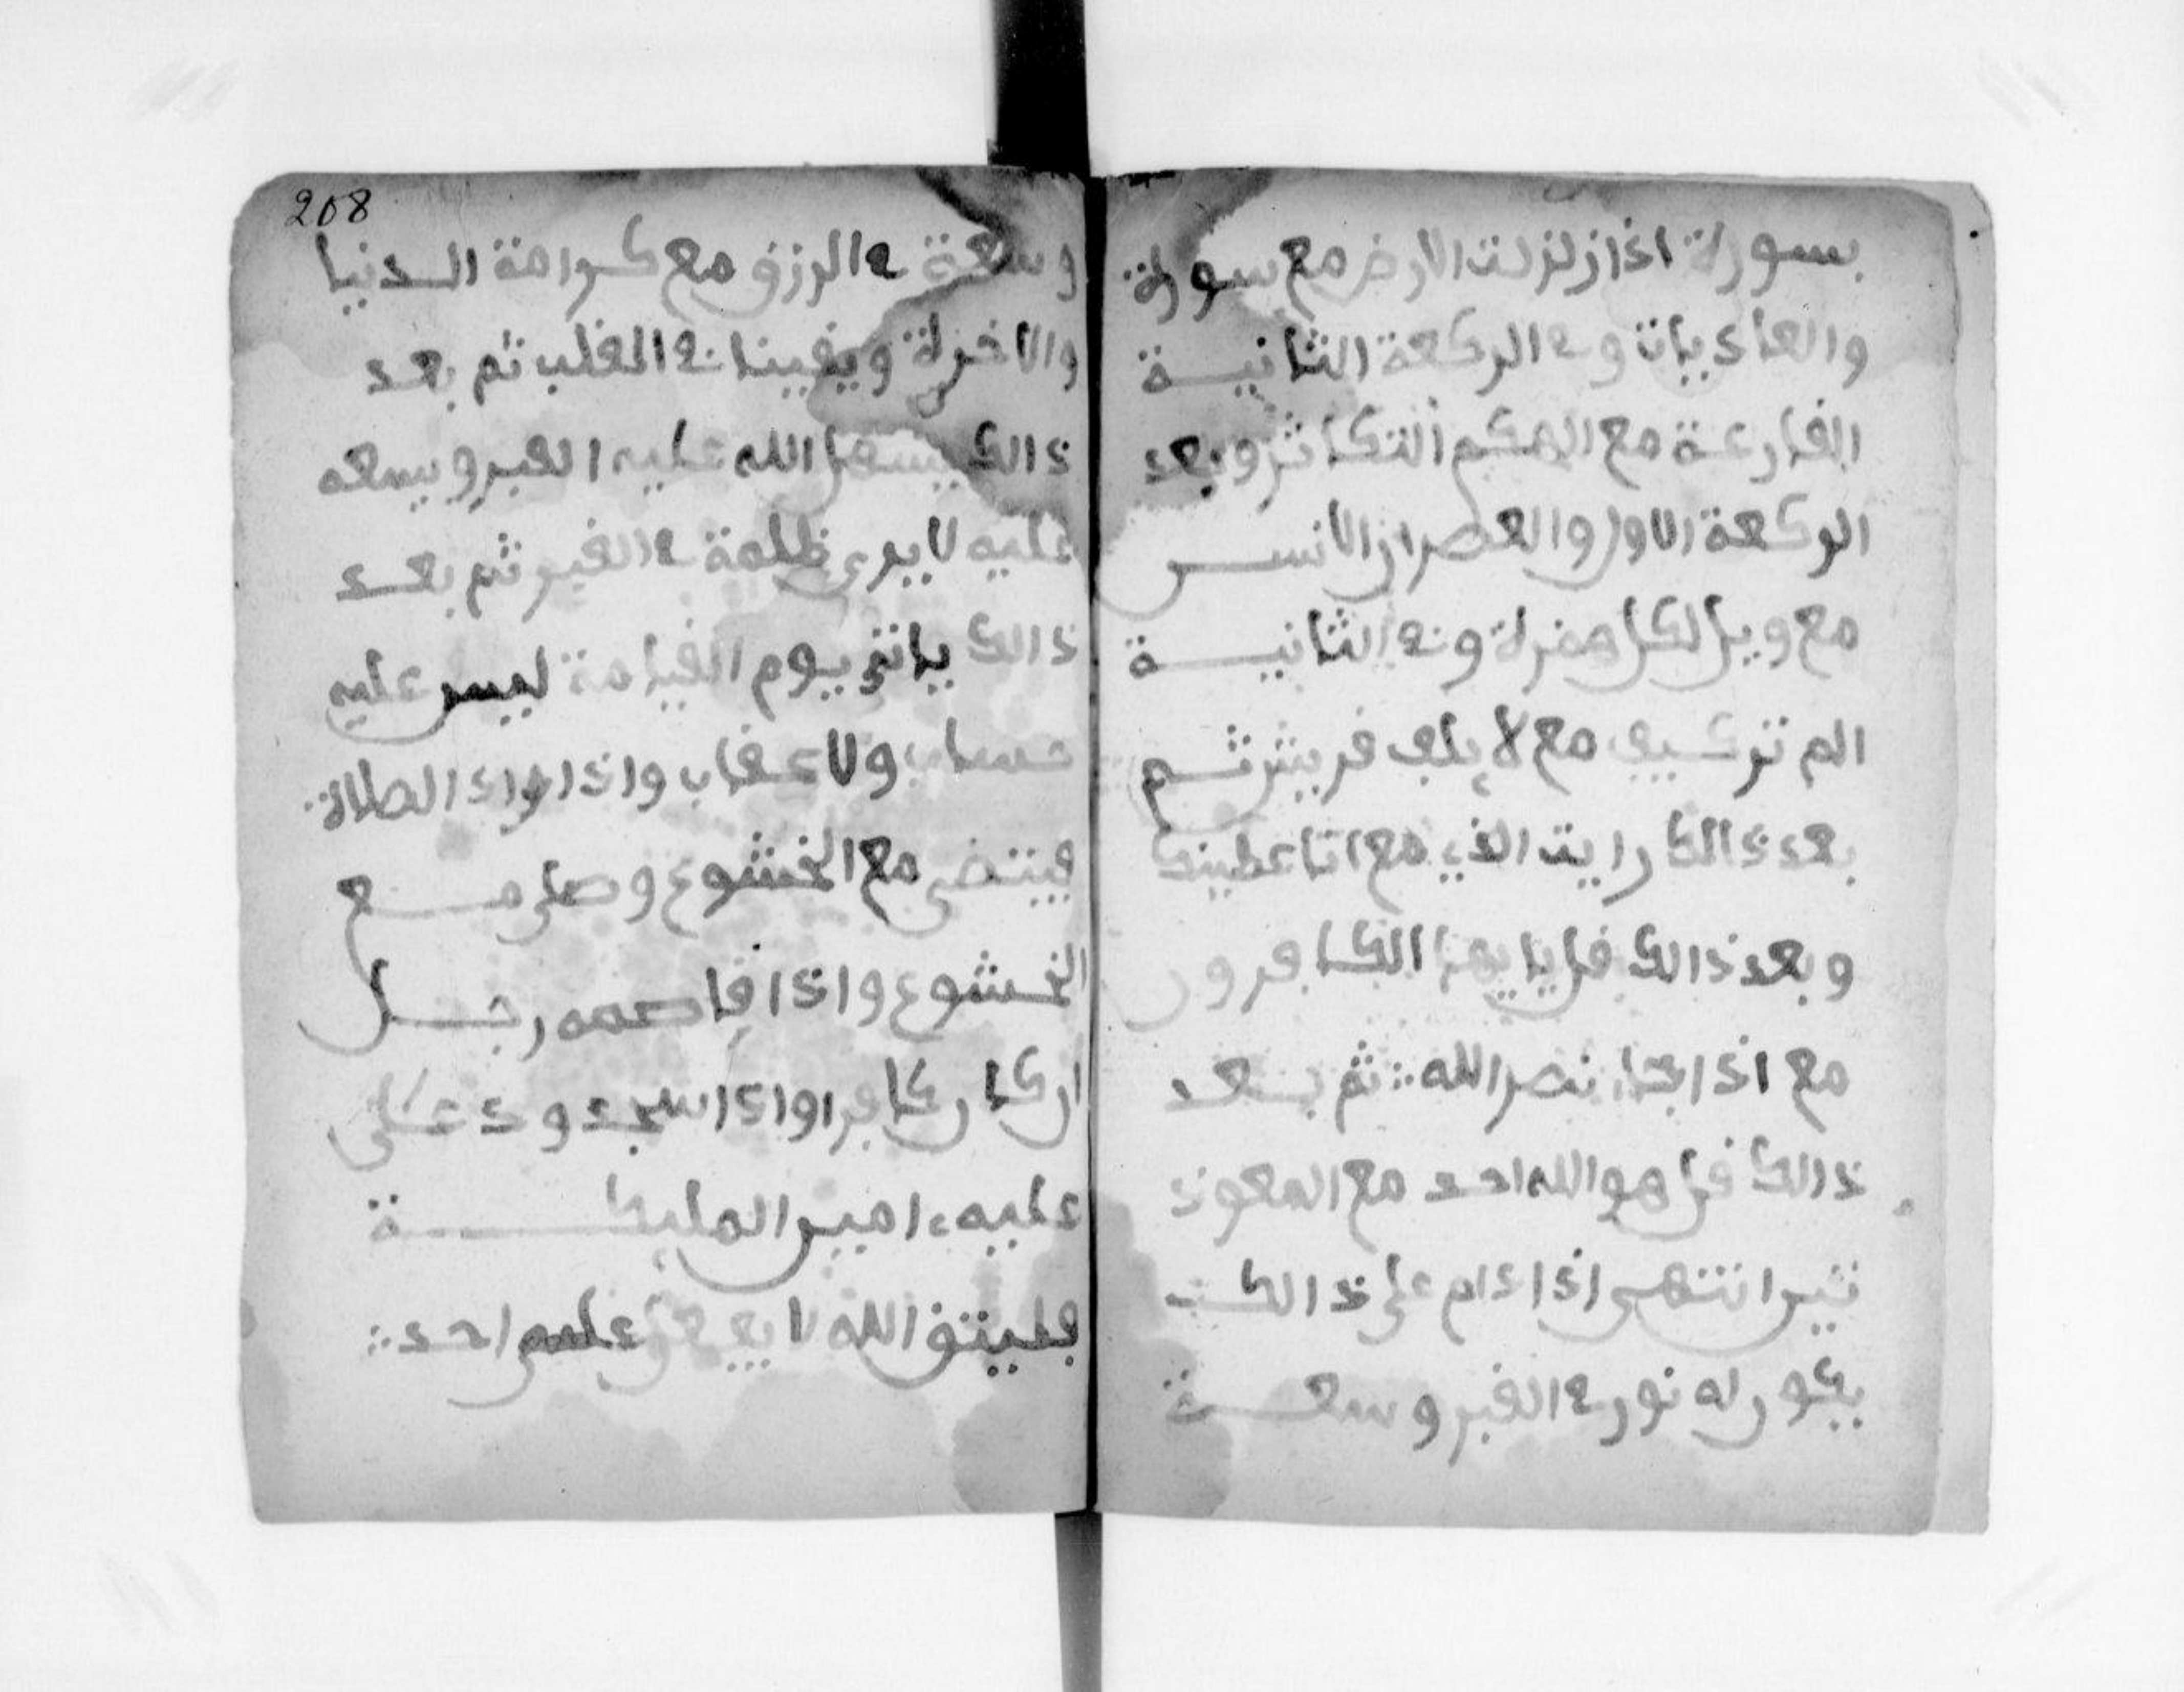 بسورة اذا زلزلت الارض مع سورة
والعاديات وفي الركعة الثانيـــة
القارعة مع الهكم التكاثر وبعد
الركعة الاول والعصر ان الانســـ
مع ويل لكل همزة وفي الثانيـــة
الم تر كيف مع لايلف قريش ثـــم
بعد ذالك رايت الذي مع انا عطينك
وبعد ذالك قل يا يها الكافرون
مع اذا جاء نصر الله ∴ ثم بـــعد
ذالك قل هو الله احد مع المعوذ
تين انتهى اذا دام على ذالك
يكون له نور في القبر وسعـــة
208
وسعة في الرزق مع كرامة الـــدنيا
والاخرة ويقينا في القلب ثم بعد
ذالك يسهل الله عليه القبر ويسعه
عليه لا يرى ظلمة في القبر ثم بعـــد
ذالك ياتي يوم القيامة ليس عليه
حساب ولا عقاب واذا اراد الصلاة
مع الخشوع وصلى مـــع
الخشوع واذا رجـــل
ان كان كافرا واذا سجد ود عـــلى
عليه امين المليكـــة
فليتق الله لا احد ∴